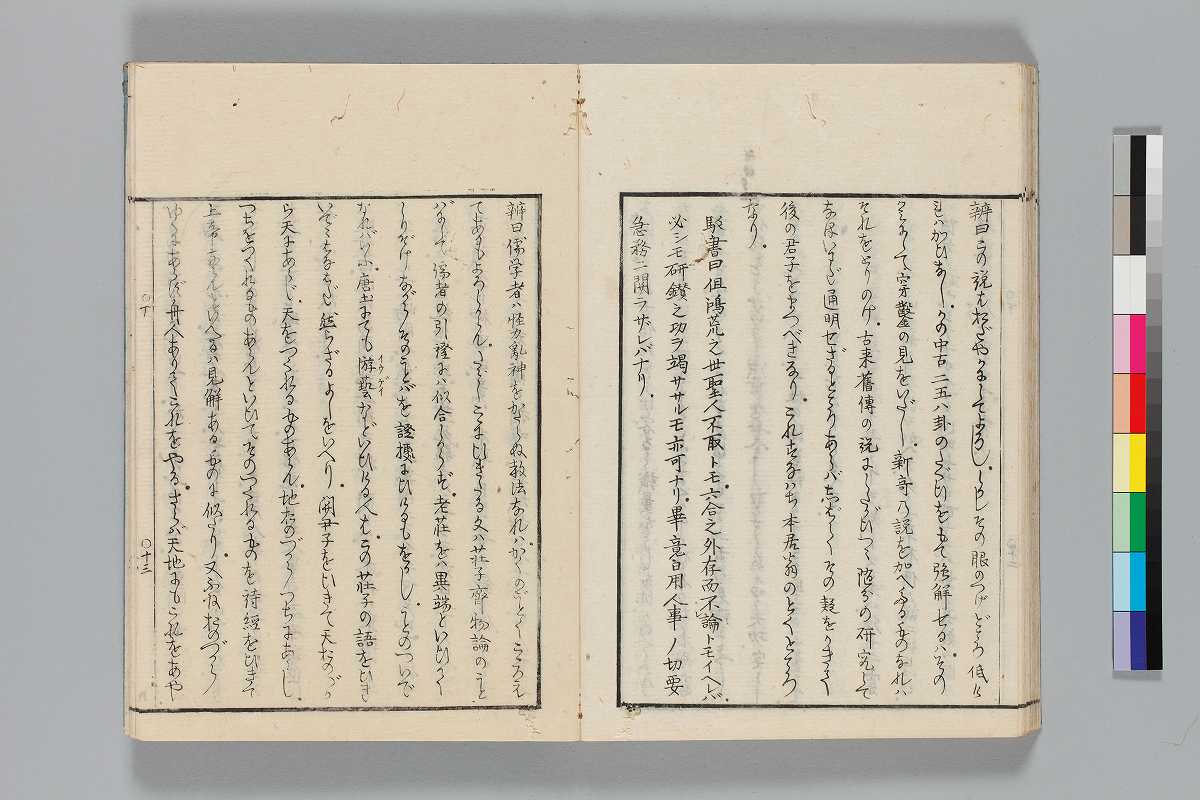 辨曰この説はおだやかにしてよろし。しかしその眼のつけどころ低け
ればかひなし。かの中古二五八卦のたぐひをもて強解せるは。その
うへにして穿鑿の見をいだし。新奇乃説を加へたるものなれは
それをとりのけ。古来舊傳の説にしたがひつゝ随分の研究して
なほいまだ通明せざるところあらバしばらくその疑をかきて
後の君子をまつべきなり。これすなはち本居翁のとくところ
なり。
駁書曰但鴻荒之世聖人不取トモ六合之外存而不論トモイヘレバ
必シモ研鑚之功ヲ竭ササルモ亦可ナリ。畢竟日用人事ノ切要
急務ニ関ラサレバナリ。
辨曰儒学者ハ怪力亂神をかたらぬ教法なれハ。かくのごとくこゝろえ
てあるもよろしからん。さてこゝにいきたる文ハ荘子齊物論のこと
バにして儒者の引證にハ似合しからず。老荘をハ異端といひかく
しりぞけながらそのことバを證據にひけるもをかし。ことのついで
なれバいふ。唐土にても游藝などいひける人も。この荘子の語をひき
いでこそなほだも然らざるよしをいへり。関尹子をひきて天おのづか
ら天にあらじ。天をつくれるものあらん。地おのづからつちにあらじ。
つちをつくれるものあらんといひて。そのつくれるものを詩經をひきて
上帝
見解あるものに似たり。又ふねおのづから
ゆくにあらず舟人ありてこれをやる。さらバ天地にもこれをあや
〇丁
〇十三